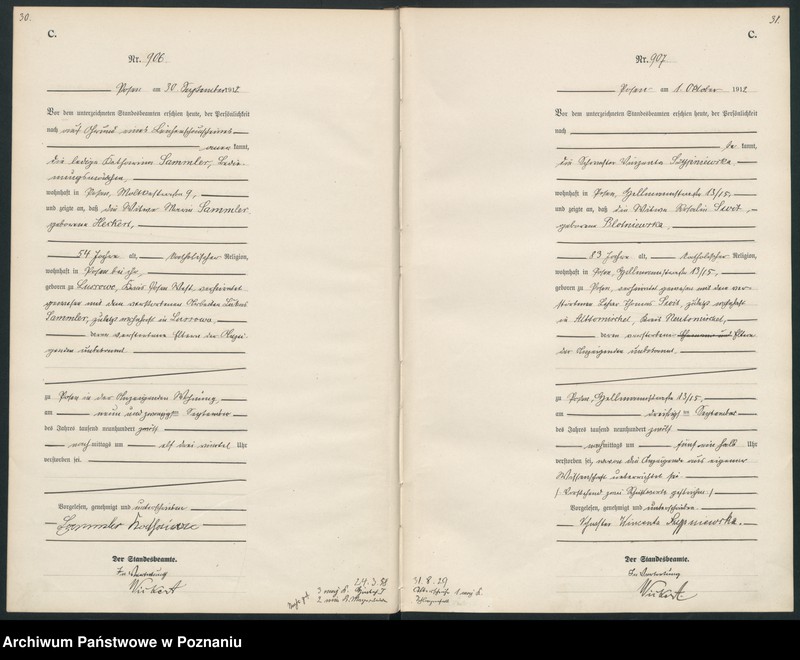 30.
C.
Nr. 906
Posen am 30 September 1912
Vor dem unterzeichneten Standesbeamten erschien heute, der Persönlichkeit
nach auf Grund eines Leichenschauscheines
aner kannt,
die ledige Katharina Sammler, Bedie
nungsmädchen,
wohnhaft in Posen, Moltkestraße 9,
und zeigte an, daß die Witwe Maria Sammler
geborene Herkert,
54 Jahre alt, katholischer Religion,
wohnhaft in Posen bei ihr,
geboren zu Lussowo, Kreis Posen West, verheiratet
gewesen mit dem verstorbenen Arbeiter Lukas
Sammler, zuletzt wohnhaft in Lussowo
deren verstorbene Eltern der Anzei
genden unbekannt
zu Posen in der Anzeigenden Wohnung
am neun und zwanzigsten September
des Jahres tausend neunhundert zwölf
nach mittags um elf drei viertel Uhr
verstorben sei.
Vorgelesen, genehmigt und unterschrieben
Sammler
Der Standesbeamte.
In Vertretung
24.3.31
31.
C.
Nr. 907
Posen am 1. Oktober 1912
Vor dem unterzeichneten Standesbeamten erschien heute, der Persönlichkeit
nach
be kannt,
die Schwester Vinzenta
wohnhaft in Posen, Hellmannstraße 13/15,
und zeigte an, daß die Witwe Rosalie
geborene Blotniewska,
83 Jahre alt, katholischer Religion,
wohnhaft in Posen, Hellmannstraße 13/15,
geboren zu Posen, verheiratet gewesen mit dem ver-
storbenen Lehrer Thomas zuletzt wohnhaft
in Alttomischel, Kreis Neutomischel,
deren verstorbene Eltern
der Anzeigenden unbekannt
zu Posen, Hellmannstraße 13/15,
am dreißigsten September
des Jahres tausend neunhundert zwölf
nachmittags um fünf ein halb Uhr
verstorben sei, wovon die Anzeigende aus eigener
Wissenschaft unterrichtet sei
Vorstehend zwei Schriftworte gestrichen
Vorgelesen, genehmigt und unterschrieben
Schwester Vincenta
Der Standesbeamte.
In Vertretung
31.8.29
Archiwum Państwowe w Poznaniu